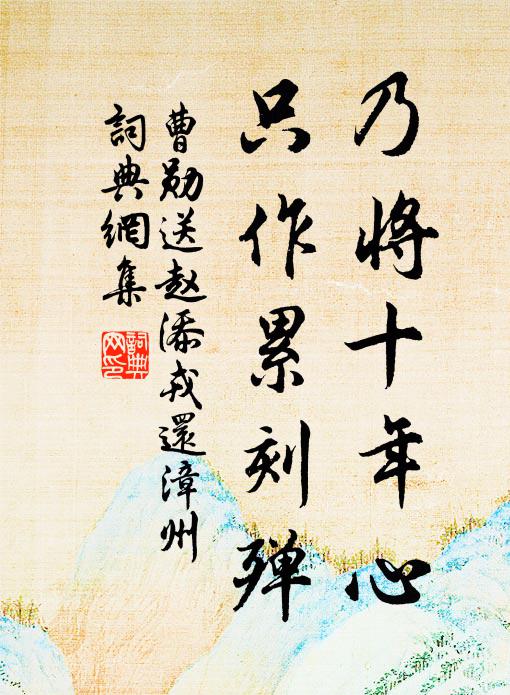 乃将十年心
只作累刻殚
曹勋送赵添戎還漳州
詞典網集
詞典
网印